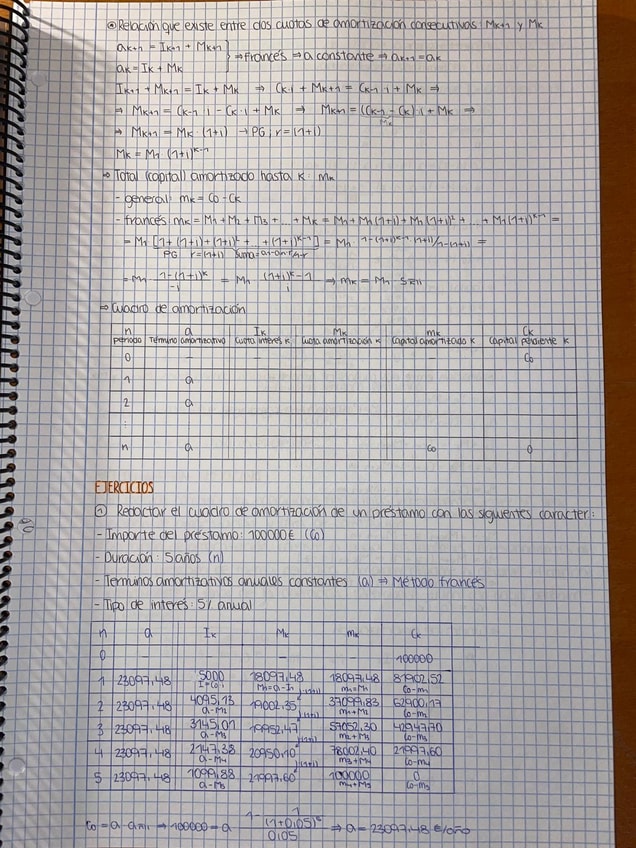 ⊙ Relación que existe entre dos cuotas de amortización consecutivas: Mk+1 y Mk
ak+1 = Ik+1 + Mk+1
ak = Ik + Mk } ⇒ francés ⇒ a constante ⇒ ak+1 = ak
Ik+1 + Mk+1 = Ik + Mk ⇒ Ck·i + Mk+1 = Ck-1·i + Mk ⇒
⇒ Mk+1 = Ck-1·i - Ck·i + Mk ⇒ Mk+1 = (Ck-1 - Ck)·i + Mk ⇒
Mk
⇒ Mk+1 = Mk·(1+i) → PG; r = (1+i)
Mk = M1·(1+i)^k-1
⇒ Total (capital) amortizado hasta k: mk
- general: mk = C0 - Ck
- francés: mk = M1 + M2 + M3 + ... + Mk = M1 + M1(1+i) + M1(1+i)² + ... + M1(1+i)^k-1 =
= M1 [1 + (1+i) + (1+i)² + ... + (1+i)^k-1] = M1 · 1-(1+i)^k-1·(1+i)/1-(1+i) =
PG r=(1+i) Suma = a1-an·r/1-r
= M1 · 1-(1+i)^k/-i = M1 · (1+i)^k-1/i ⇒ mk = M1 · Sk̅|i
⇒ Cuadro de amortización
n a Ik Mk mk Ck
periodo Término amortizativo Cuota interés k Cuota amortización k Capital amortizado k Capital pendiente k
0 - - - - C0
1 a
2 a
:
n a C0 0
EJERCICIOS
① Redactar el cuadro de amortización de un préstamo con las siguientes caracter:
- Importe del préstamo: 100000€ (C0)
- Duración: 5 años (n)
- Términos amortizativos anuales constantes (a) ⇒ Método francés
- Tipo de interés: 5% anual
n a Ik Mk mk Ck
0 - - - - 100000
1 23097,48 5000 18097,48 18097,48 81902,52
I=C0·i M1=a-I1 m1=M1 C0-m1
·(1+i)
2 23097,48 4095,13 19002,35 37099,83 62900,17
a-M2 m1+M2 C0-m2
·(1+i)
3 23097,48 3145,01 19952,47 57052,30 42947,70
a-M3 m2+M3 C0-m3
·(1+i)
4 23097,48 2147,38 20950,10 78002,40 21997,60
a-M4 m3+M4 C0-m4
·(1+i)
5 23097,48 1099,88 21997,60 100000 0
a-M5 m4+M5 C0-m5
C0 = a · an̅|i ⇒ 100000 = a · 1 - 1/(1+0,05)^5 / 0,05 ⇒ a = 23097,48 €/año